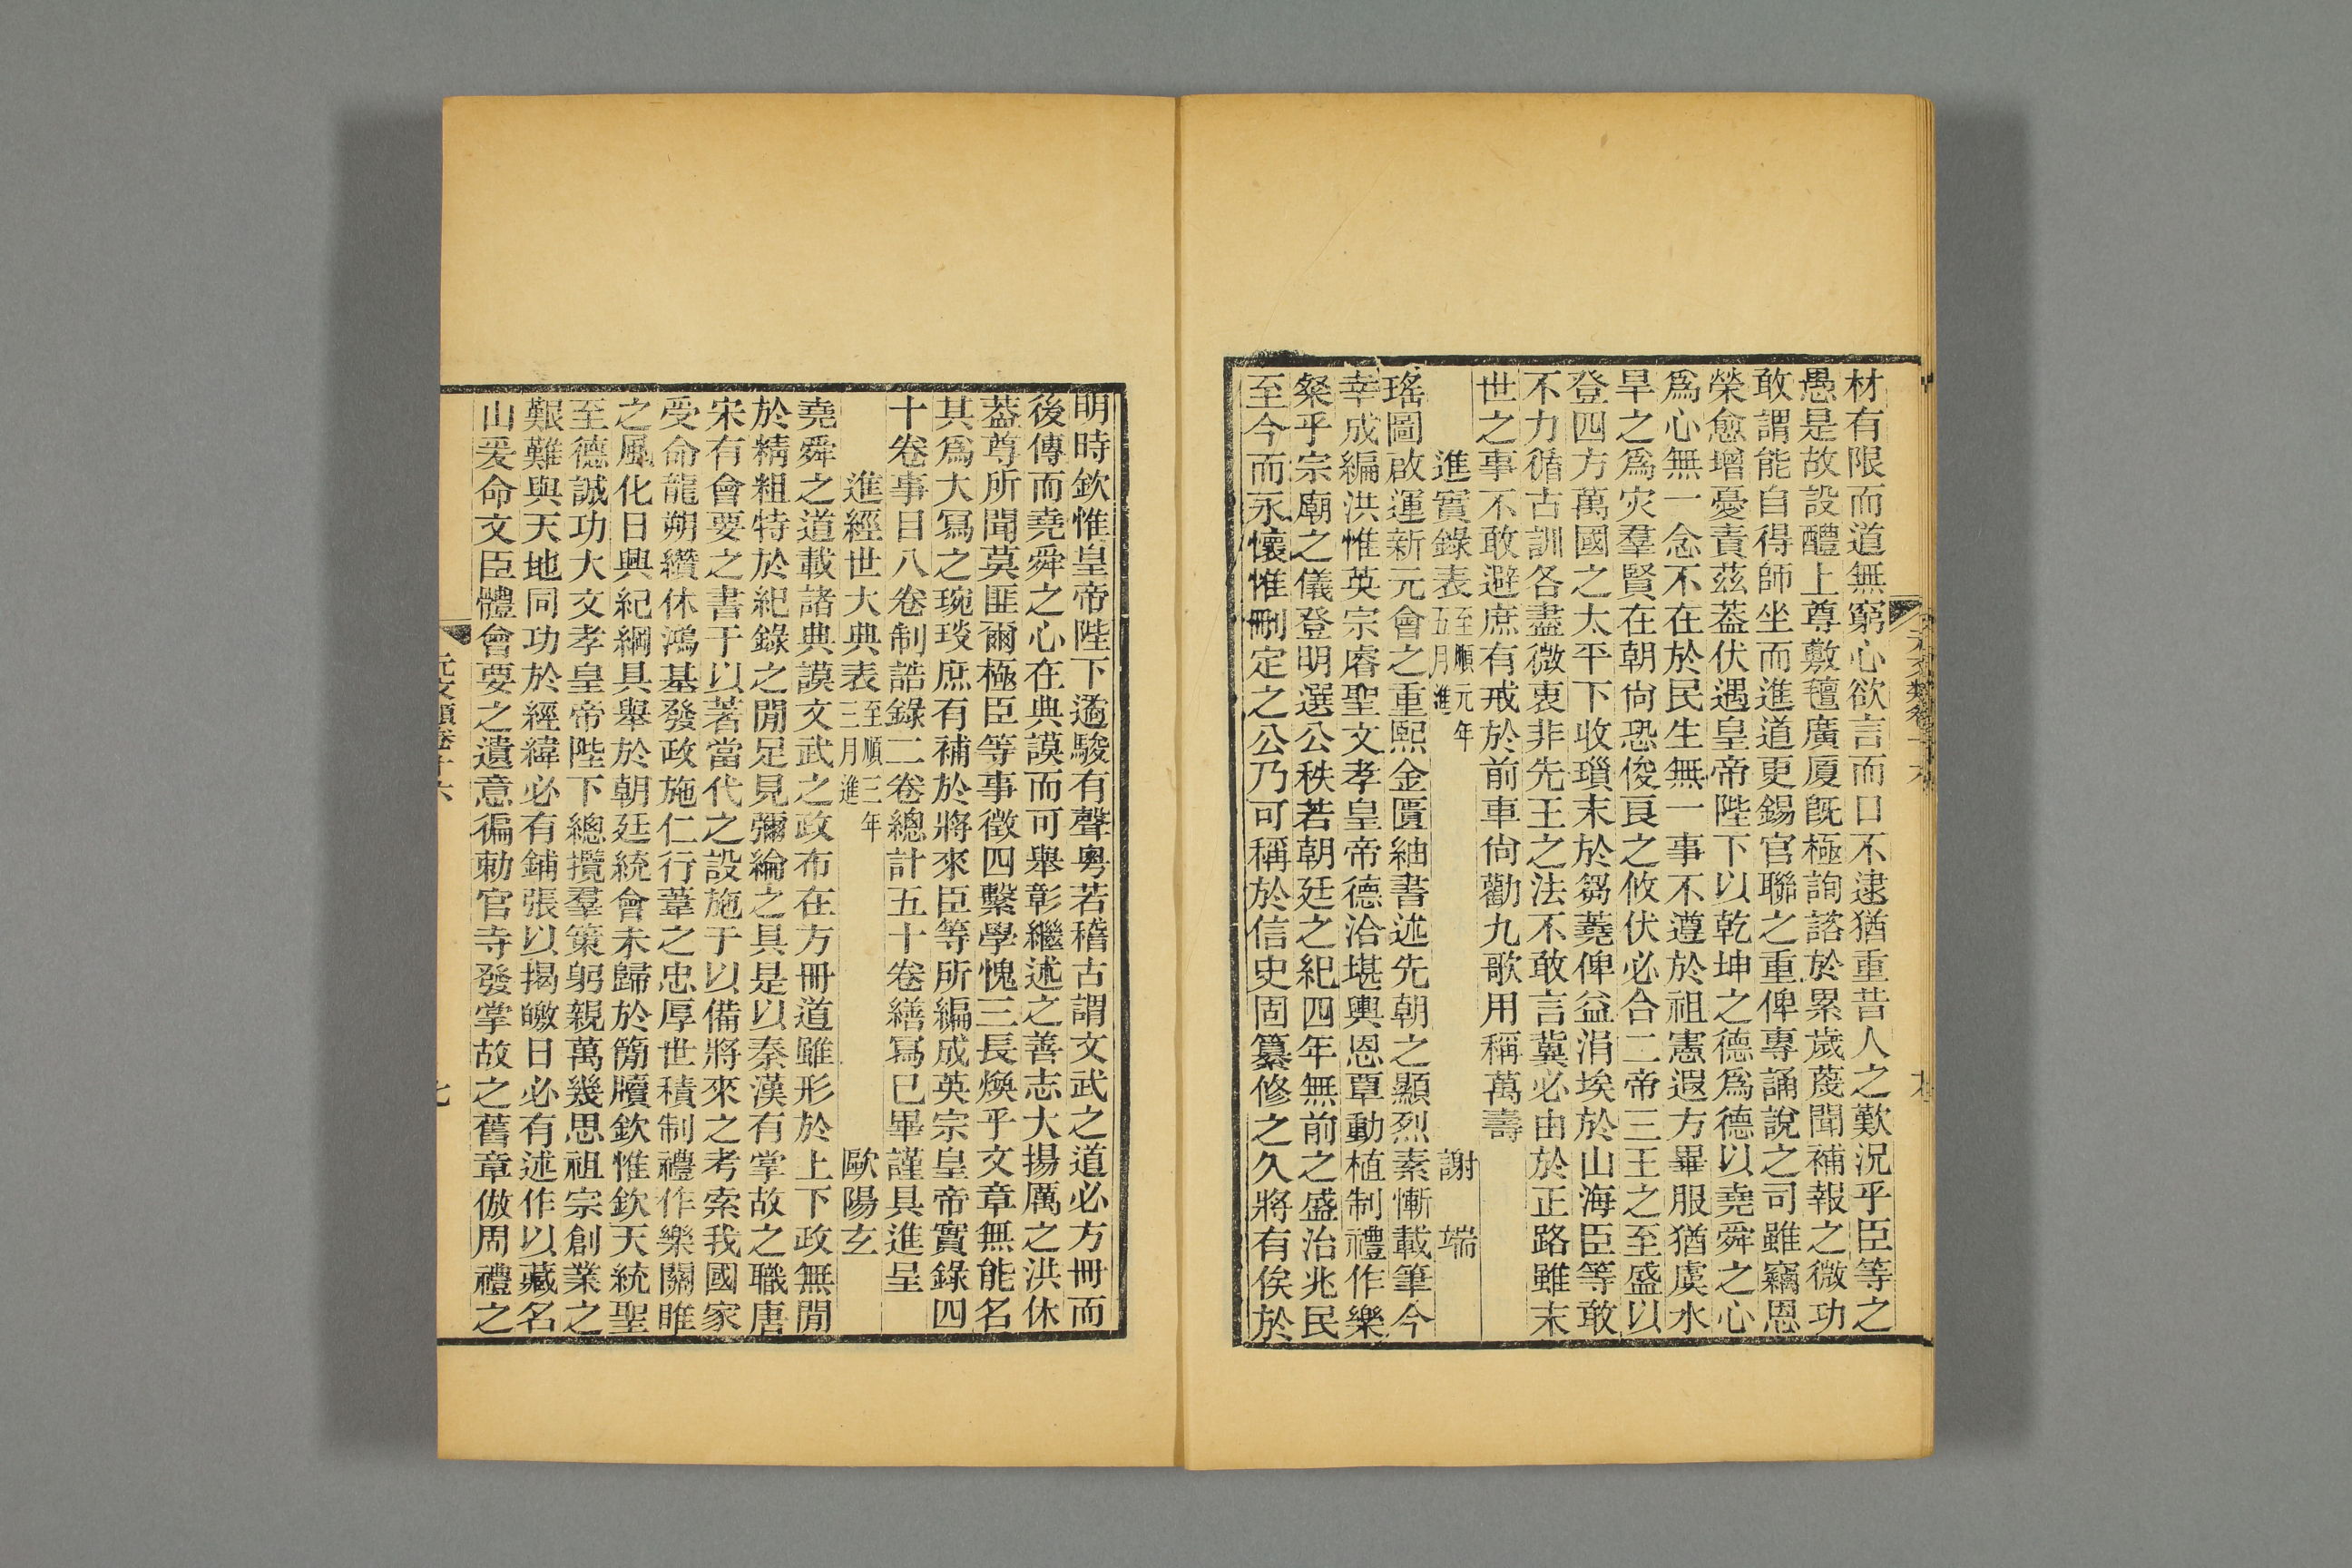 材有限而道無窮心欲言而口不逮猶重昔人之歎況乎臣等之
愚是故設醴上尊敷氊廣厦旣極詢諮於累歲蔑聞補報之微功
敢謂能自得師坐而進道更錫官聯之重俾專誦說之司雖竊恩
榮愈增憂責茲葢伏遇皇帝陛下以乾坤之德爲德以堯舜之心
爲心無一念不在於民生無一事不遵於祖憲遐方畢服猶虞水
旱之爲灾羣賢在朝尙恐俊良之攸伏必合二帝三王之至盛以
登四方萬國之太平下收瑣末於芻蕘俾益涓埃於山海臣等敢
不力循古訓各盡微衷非先王之法不敢言冀必由於正路雖末
世之事不敢避庶有戒於前車尙勸九歌用稱萬壽
進實錄表至順元年五月進 謝端
瑤圖啟運新元會之重熙金匱紬書述先朝之顯烈素慚載筆今
幸成編洪惟英宗睿聖文孝皇帝德洽堪輿恩覃動植制禮作樂
粲乎宗廟之儀登明選公秩若朝廷之紀四年無前之盛治兆民
至今而永懷惟刪定之公乃可稱於信史固纂修之久將有俟於
明時欽惟皇帝陛下遹駿有聲粤若稽古謂文武之道必方冊而
後傳而堯舜之心在典謨而可舉彰繼述之善志大揚厲之洪休
葢尊所聞莫匪爾極臣等事徵四繫學愧三長煥乎文章無能名
其爲大寫之琬琰庶有補於將來臣等所編成英宗皇帝實錄四
十卷事目八卷制誥錄二卷總計五十卷繕寫已畢謹具進呈
進經世大典表至順三年三月進 歐陽玄
堯舜之道載諸典謨文武之政布在方冊道雖形於上下政無閒
於精粗特於紀錄之閒足見彌綸之具是以秦漢有掌故之職唐
宋有會要之書于以著當代之設施于以備將來之考索我國家
受命龍朔纘休鴻基發政施仁行葦之忠厚世積制禮作樂關雎
之風化日興紀綱具舉於朝廷統會未歸於簡牘欽惟欽天統聖
至德誠功大文孝皇帝陛下總攬羣策躬親萬幾思祖宗創業之
艱難與天地同功於經緯必有鋪張以揭皦日必有述作以藏名
山爰命文臣體會要之遺意徧勅官寺發掌故之舊章倣周禮之
元文類卷十六
七